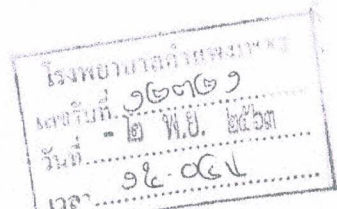 โรงพยาบาลกำแพงเพชร
เลขรับที่ ๑๒๓๒๑
วันที่ - ๒ พ.ย. ๒๕๖๓
เวลา